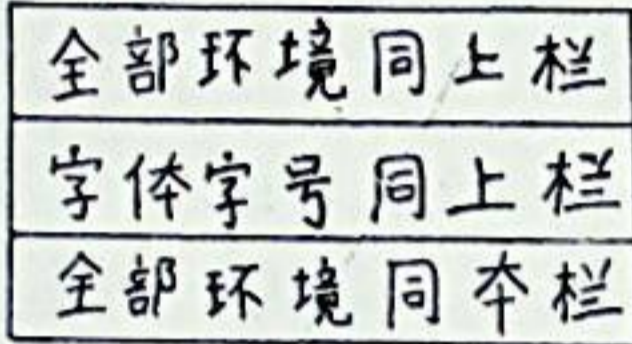 全部环境同上栏
字体字号同上栏
全部环境同本栏